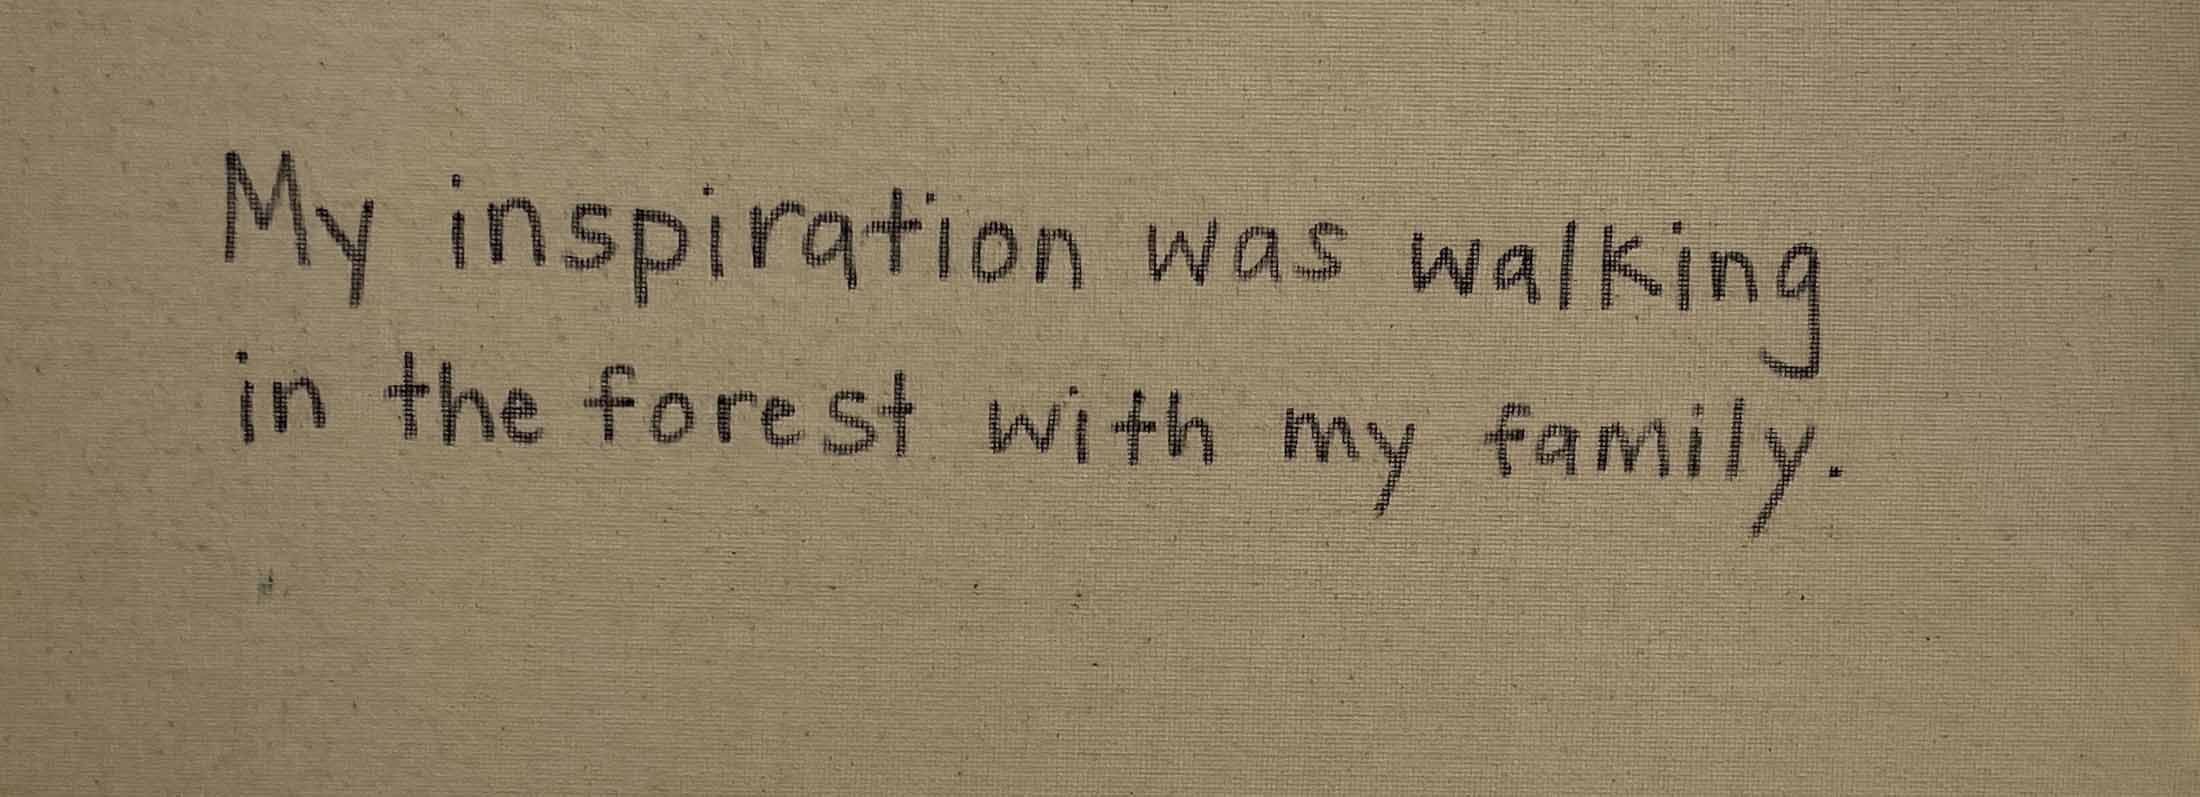 My inspiration was walking
in the forest with my family.